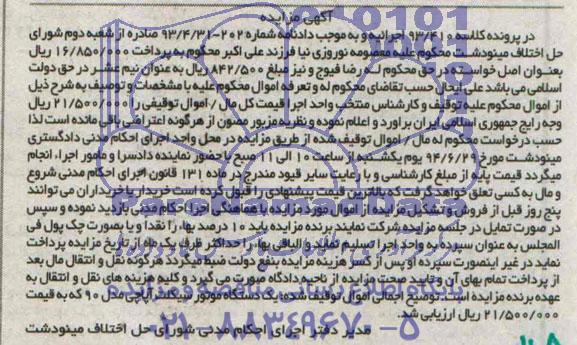 آگهی مزایده
در پرونده کلاسه 93/410 اجرائیه و به موجب دادنامه شماره 202-93/4/31 صادره از شعبه دوم شورای
حل اختلاف مینودشت محکوم علیه معصومه نوروزی نیا فرزند علی اکبر محکوم به پرداخت 16/850/000 ریال
بعنوان اصل خواسته در حق محکوم له رضا فیوج و نیز مبلغ 842/500 ریال به عنوان نیم عشر در حق دولت
اسلامی می باشد علی ایحال حسب تقاضای محکوم له و تعرفه اموال محکوم علیه با مشخصات و توصیف به شرح ذیل
از اموال محکوم علیه توقیف و کارشناس منتخب واحد اجرا قیمت کل مال / اموال توقیفی را 21/500/000 ریال
وجه رایج جمهوری اسلامی ایران براورد و اعلام نموده و نظریه مزبور مصون از هرگونه اعتراضی باقی مانده است لذا
حسب درخواست محکوم له مال / اموال توقیف شده از طریق مزایده در محل واحد اجرای احکام مدنی دادگستری
مینودشت مورخ 94/6/29 یوم یکشنبه از ساعت 10 الی 11 صبح با حضور نماینده دادسرا و مامور اجرا، انجام
میگردد قیمت پایه از مبلغ کارشناسی و با رعایت سایر قیود مندرج در ماده 131 قانون اجرای احکام مدنی شروع
و مال به کسی تعلق خواهد گرفت که بالاترین قیمت پیشنهادی را قبول کرده است خریدار یا خریداران می توانند
پنج روز قبل از فروش و تشکیل مزایده از اموال مورد مزایده با هماهنگی اجرا احکام مدنی بازدید نموده و سپس
در صورت تمایل در جلسه مزایده شرکت نمایند برنده مزایده باید 10 درصد بها را نقدا و یا بصورت چک پول فی
المجلس به عنوان سپرده به واحد اجرا تسلیم نماید و الباقی بها را حداکثر ظرف یک ماه از تاریخ مزایده پرداخت
نماید در غیر اینصورت سپرده او پس از کسر هزینه مزایده بنفع دولت ضبط میگردد هرگونه نقل و انتقال مال بعد
از پرداخت تمام بهای آن و تایید صحت مزایده از ناحیه دادگاه صورت می گیرد و کلیه هزینه های نقل و انتقال به
عهده برنده مزایده است توضیح اجمالی اموال توقیف شده: یک دستگاه موتور سیکلت آپاچی مدل 90 که به قیمت
21/500/000 ریال ارزیابی شد.
مدیر دفتر اجرای احکام مدنی شورای حل اختلاف مینودشت
ParsNamadData
پایگاه اطلاع رسانی مناقصه و مزایده
021-88349670-5